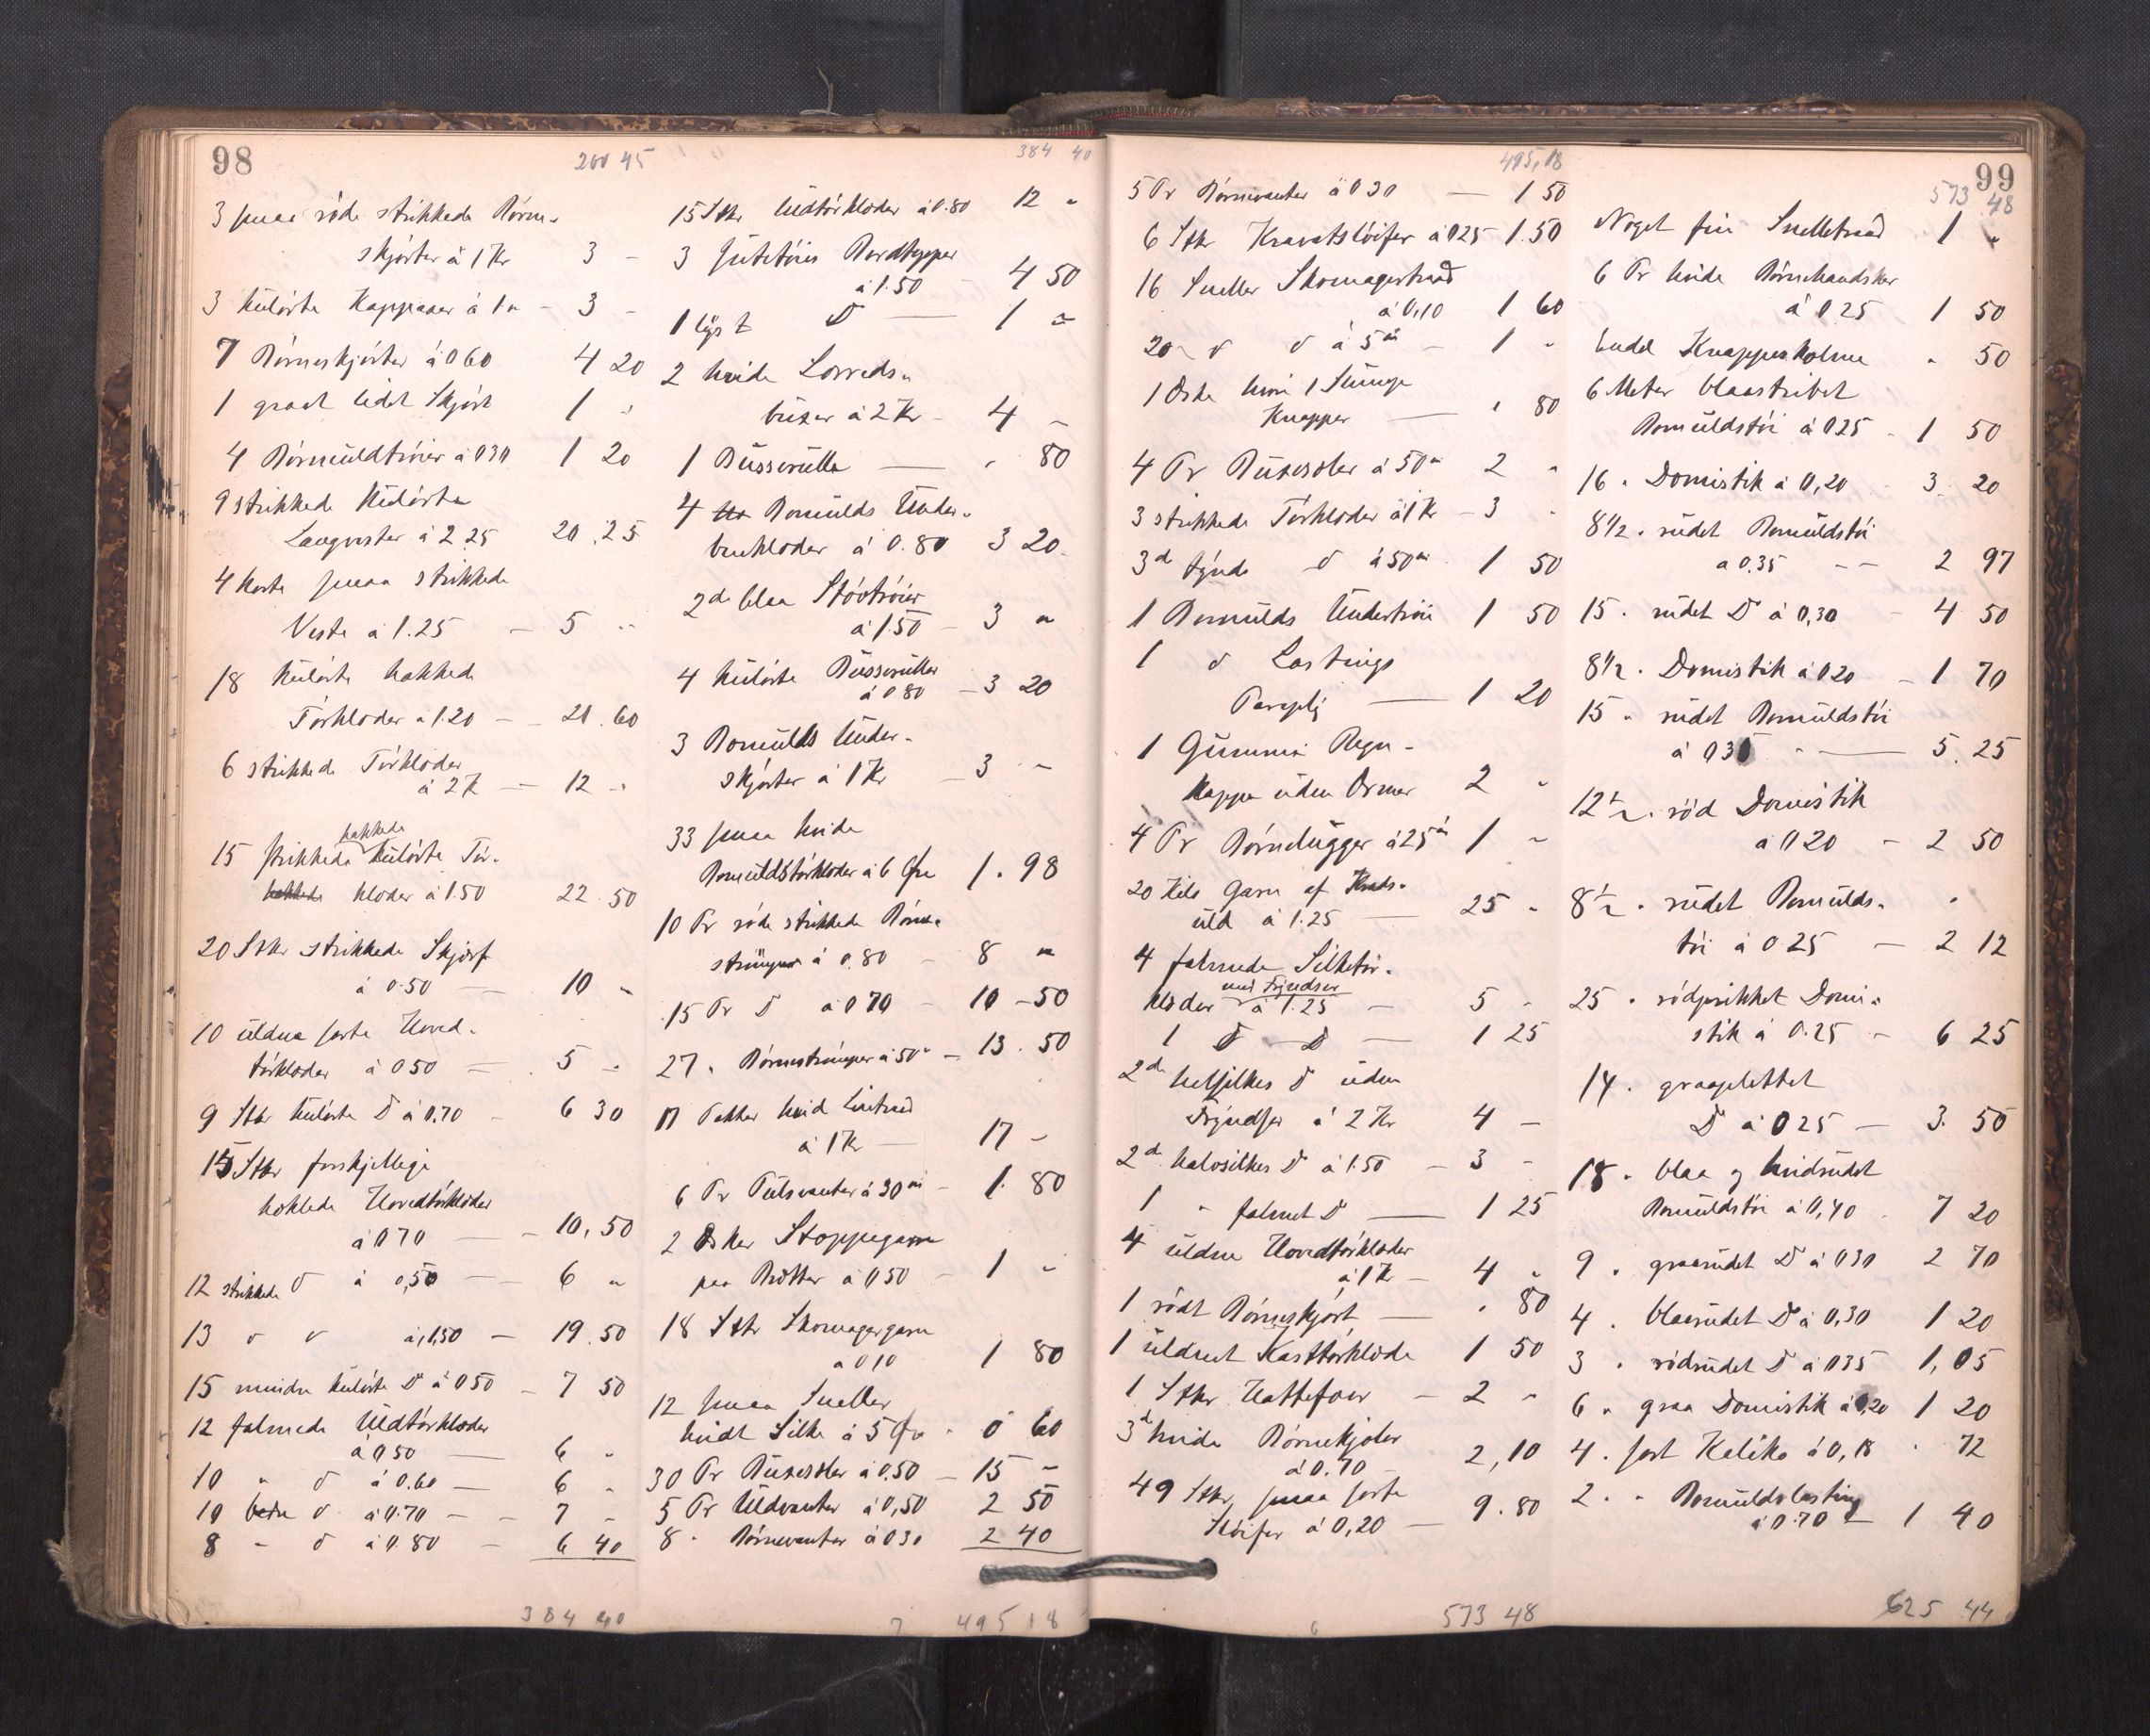 98
200 45
3 smaa röde strikkede Börne-
skjörter à 1 Kr 3 -
3 kulörte Kappaaer à 1 " - 3 -
7 Börneskjörter à 0 60 4 20
1 graat lidet Skjört 1 "
4 Börneuldtröier à 0 30 1 20
9 strikkede kulörte
Langvester à 2.25 20.25
4 korte smaa strikkede
Veste à 1.25 - 5 "
18 kulörte haklede
Törklæder à 1.20 - 21.60
6 strikkede Törklæder
à 2 K - 12 "
15 strikkede haklede kulörte Tör-
klæder à 1.50 22.50
20 Stkr strikkede Skjærf
à 0.50 - 10 "
10 uldne sorte Hoved-
törklæder à 0 50 - 5 "
9 Stkr kulörte D à 0.70 - 6 30
15 Stkr forskjellige
haklede Hovedtörklæder
à 0 70 - 10,50
12 strikkede d à 0,50 - 6 "
13 d d à 1,50 - 19.50
15 mindre kulörte D à 0 50 - 7 50
12 falmede Uldtörklæder
à 0 50 - 6 "
10 " d à 0.60 - 6 "
10 bedre d à 0.70 - - 7 -
8 " d à 0.80 - 6 40
384 40
384 40
15 Stkr Uldtörklæder à 0.80 12 "
3 Jutetöies Bordtepper
à 1.50 - 4 50
1 lyst D - 1 "
2 hvide Lærreds-
buxer à 2 Kr - 4 -
1 Busserulle - " 80
4 Bomulds Under-
benklæder à 0.80 3 20
2 d blaa Stövtröier
à 1.50 - 3 "
4 kulörte Busseruller
à 0 80 - 3 20
3 Bomulds Under-
skjörter à 1 Kr - 3 -
33 smaa hvide
Bomuldstörklæder à 6 Öre 1.98
10 Pr röde strikkede Börne-
strümper à 0.80 - 8 "
15 Pr D à 0 70 - 10 - 50
27 " Börnestrümper à 50 " - 13.50
17 Pakker hvid Lintraad
à 1 Kr - 17 -
6 Pr Pulsvanter à 30 " - 1.80
2 Æsker Stoppegarn
paa Bretter à 0 50 - 1 "
18 Stkr Skomagergarn
à 0 10 1 80
12 smaa Sneller
hvidt Silke à 5 Öre " 0 60
30 Pr Buxeseler à 0.50 - 15 -
5 Pr Uldvanter à 0,50 2 50
8 " Börnevanter à 0 30 2 40
7 495 18
495,18
5 Pr Börnevanter à 0 30 - 1 50
6 Stkr Kravatslöifer à 0 25 1.50
16 Sneller Skomagertraad
à 0,10 1 60
20 " d d à 5 " - 1 "
1 Æske
Knapper - " 80
4 Pr Buxeseler à 50 " 2 "
3 strikkede Törklæder à 1 Kr - 3 "
3 d tynde d à 50 " 1 50
1 Bomulds Undertröie 1 50
1 d Lastings
Paraply - 1 20
1 Gummi Regn-
kappe uden Ærmer 2 "
4 Pr Börnelugger à 25 " 1 "
20 Kilo Garn af Kunds-
uld à 1.25 - 25 "
4 falmede Silketör-
klæder med Fryndser à 1.25 - 5 "
1 D - D - 1 25
2 d helsilkes D uden
Fryndser à 2 Kr 4 -
2 d halvsilkes D à 1.50 - 3 -
1 " falmet D - 1 25
4 uldne Hovedtörklæder
à 1 K - 4 "
1 rödt Börneskjört - " 80
1 uldent Kasttörklæde 1 50
1 Stkr Hattefoer - 2 "
3 d hvide Börnekjoler
à 0.70 - 2,10
49 Stkr smaa sorte
Slöifer à 0,20 - 9.80
6 573 48
99
573 48
Noget fin Snelletraad 1 "
6 Pr hvide Börnehandsker
à 0 25 1 50
Endel Knappeskolme " 50
6 Meter blaastribet
Bomuldstöi à 0 25 - 1 50
16 " Domistik à 0,20 - 3.20
8 1/2 " rudet Bomuldstöi
à 0.35 - - 2 97
15 " rudet D à 0,30 - 4 50
8 1/2 " Domistik à 0 20 - 1 70
15 " rudet Bomuldstöi
à 0 35 " - 5.25
12 1/2 " röd Domistik
à 0 20 - 2 50
8 1/2 " rudet Bomulds-
töi à 0 25 - 2 12
25 " rödprikket Domi-
stik à 0.25 - 6 25
14 " graaplettet
D à 0 25 - 3.50
18 " blaa og hvidrudet
Bomuldstöi à 0,40 - 7 20
9 " graarudet D à 0 30 2 70
4 " blaarudet D à 0,30 1 20
3 " rödrudet D à 0 35 1,05
6 " graa Domistik à 0,20 1 20
4 " sort Kaliko à 0,18 " 72
2 " " Bomuldslasting
à 0.70 - 1 40
625 44